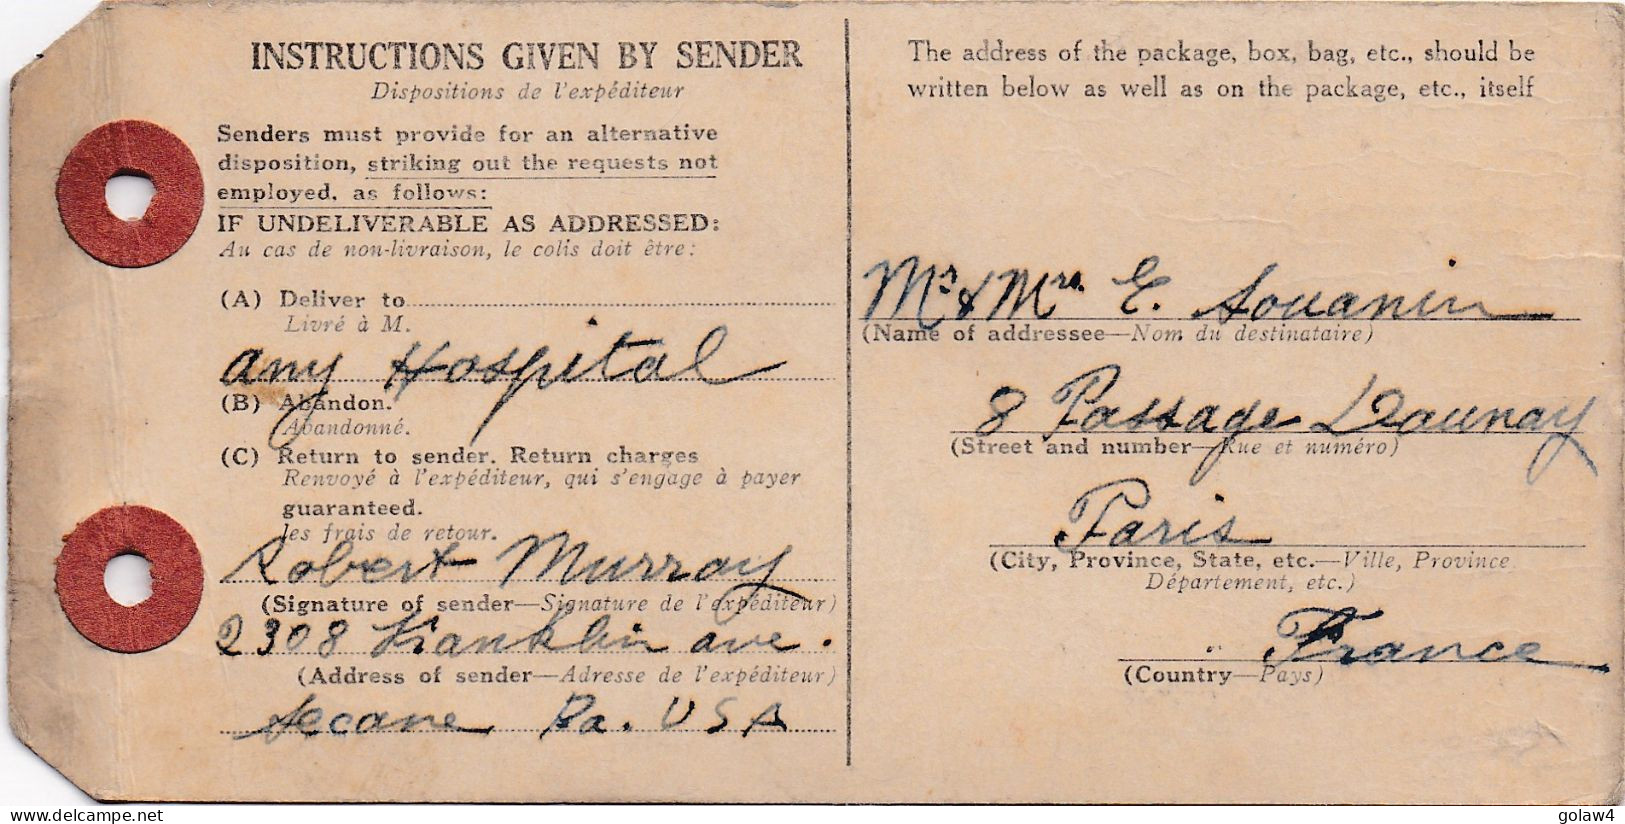 INSTRUCTIONS GIVEN BY SENDER
Dispositions de l'expéditeur
Senders must provide for an alternative
disposition, striking out the requests not
employed, as follows:
IF UNDELIVERABLE AS ADDRESSED:
Au cas de non-livraison, le colis doit être:
(A) Deliver to
Livré à M.
any Hospital
(B) Abandon.
Abandonné.
(C) Return to sender. Return charges
Renvoyé à l'expéditeur, qui s'engage à payer
guaranteed.
les frais de retour.
Robert Murray
(Signature of sender—Signature de l'expéditeur)
2308 Franklin ave.
(Address of sender—Adresse de l'expéditeur)
Secane Pa. USA
The address of the package, box, bag, etc., should be
written below as well as on the package, etc., itself
Mr & Mrs. E. Souanin
(Name of addressee—Nom du destinataire)
8 Passage Daunay
(Street and number—Rue et numéro)
Paris
(City, Province, State, etc.—Ville, Province
Département, etc.)
France
(Country—Pays)
delcampe.net
golaw4